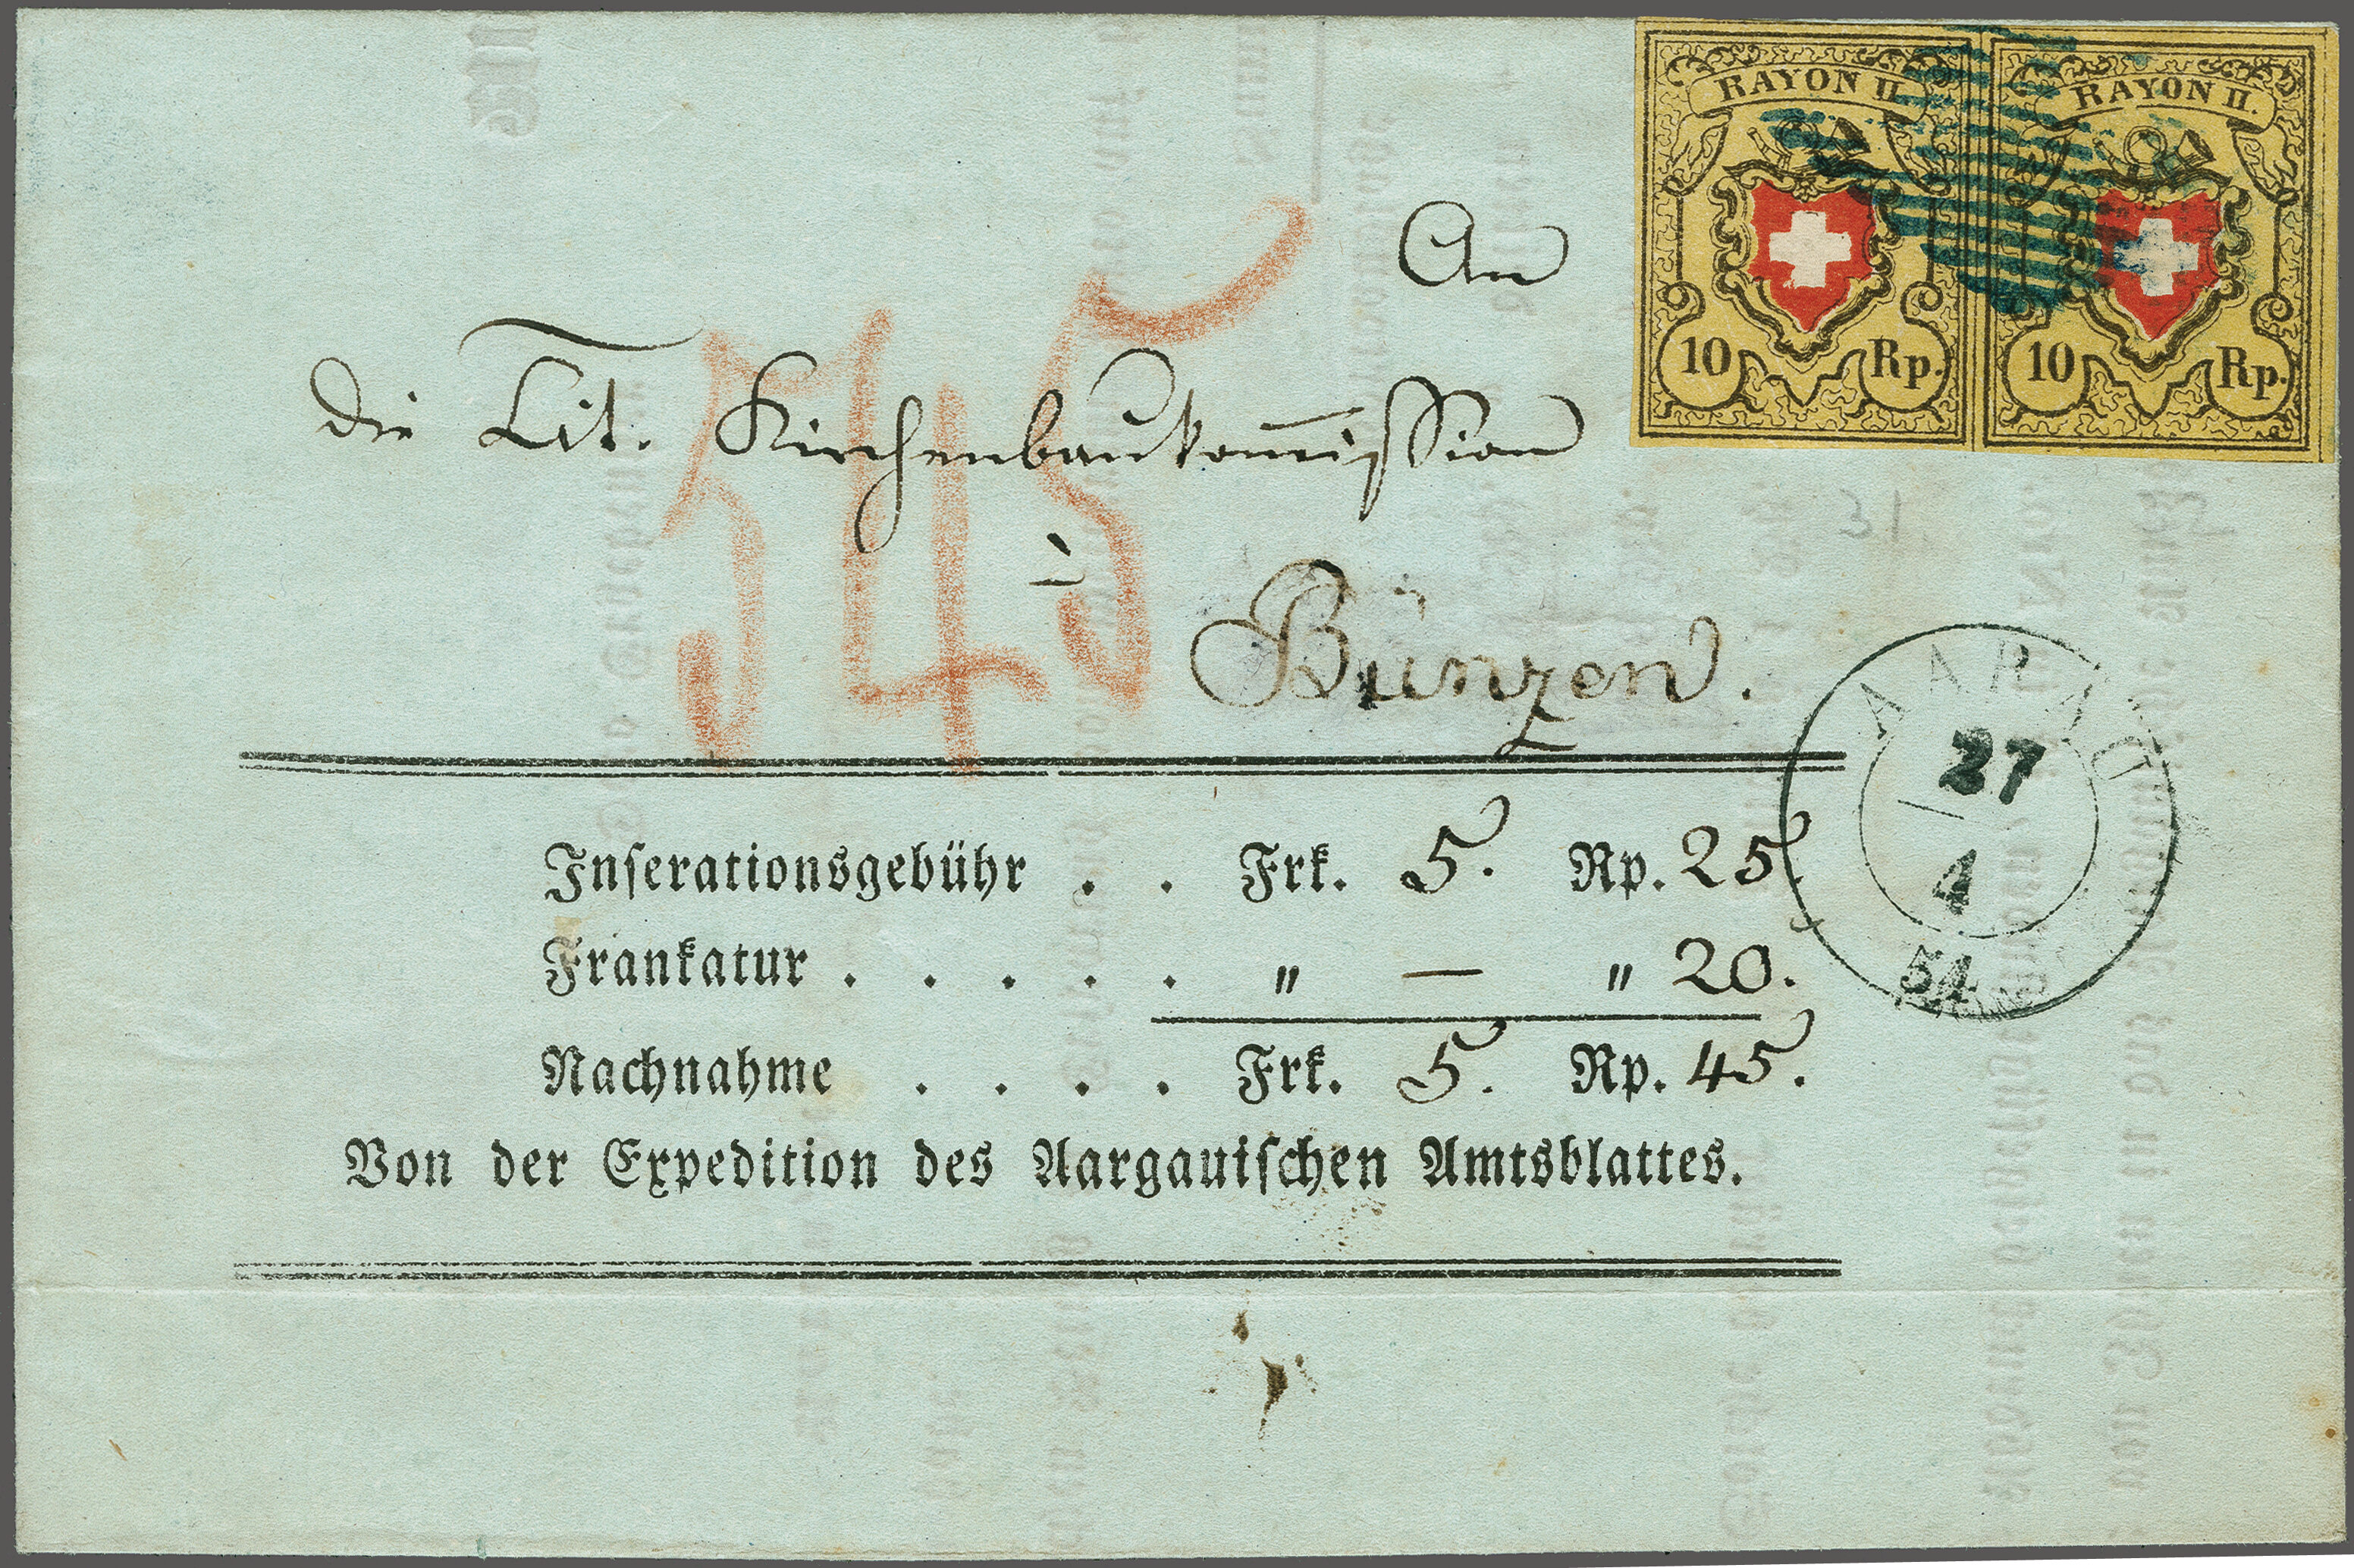 RAYON II. RAYON II.
10 Rp. 10 Rp.
An
die Tit. Kirchenbaukom̄ission
à
Bünzen.
545
31
AARAU
27
4
54
Inserationsgebühr . . Frk. 5. Rp. 25.
Frankatur . . . . . " — " 20.
Nachnahme . . . . Frk. 5. Rp. 45.
Von der Expedition des Aargauischen Amtsblattes.